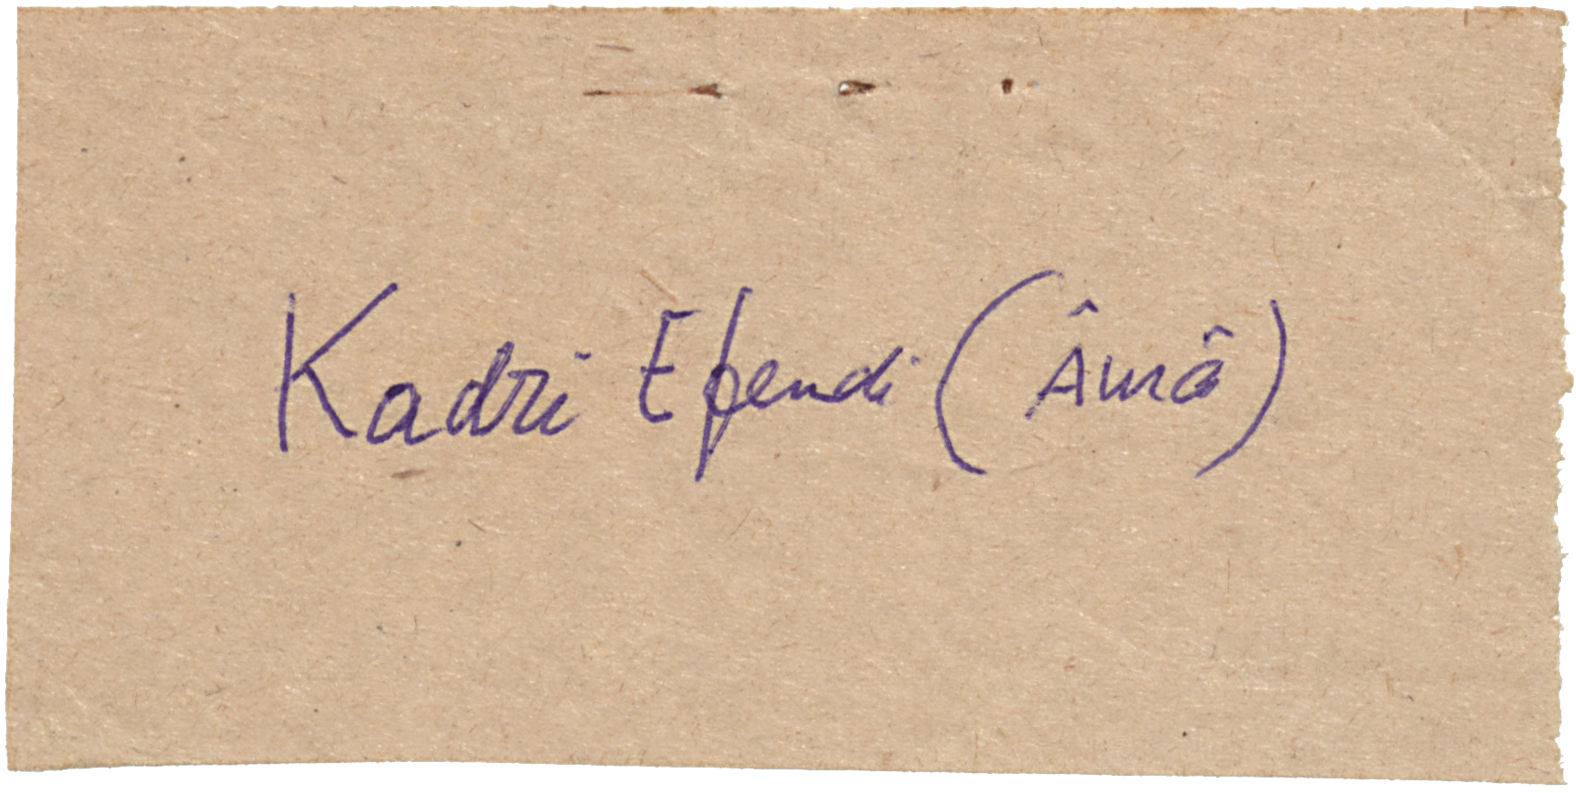 Kadri Efendi (Âmâ)